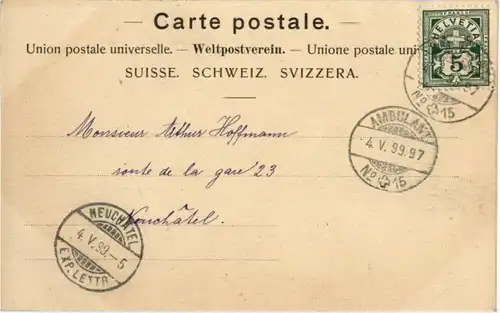 Carte postale.
Union postale universelle. — Weltpostverein. — Unione postale uni
SUISSE. SCHWEIZ. SVIZZERA.
HELVETIA
5
No 15
AMBULANT
4. V. 99.97
No 15
Monsieur Arthur Hoffmann
route de la gare 23
Neuchâtel.
NEUCHATEL
4. V. 99.-5
EXP. LETTR.